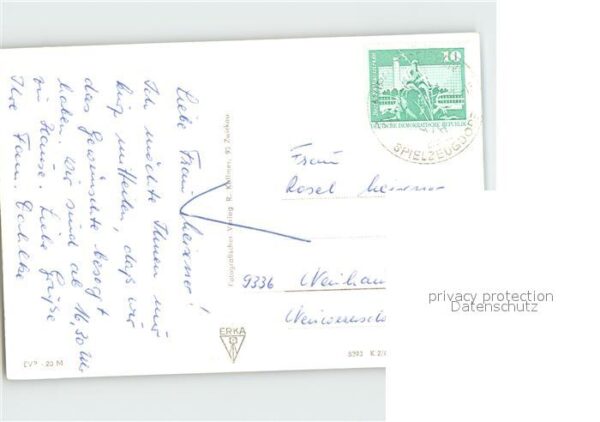 Liebe Frau
Ich möchte Ihnen nur
kurz mitteilen, daß wir
das Gewünschte besorgt
haben. Wir sind ab 16,30 Uhr
zu Hause. Liebe Grüße
Ihre Fam.
EVP -20 M
Fotografischer Verlag R. Kallmer, 95 Zwickau
ERKA
10
DEUTSCHE DEMOKRATISCHE REPUBLIK
SPIELZEUGDO
Frau
Rosel
9336
K 2/
privacy protection
Datenschutz